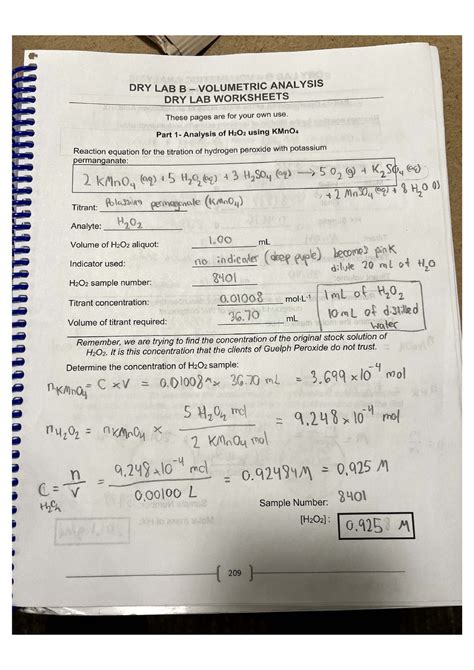 DRY LAB B – VOLUMETRIC ANALYSIS
DRY LAB WORKSHEETS
These pages are for your own use.
Part 1- Analysis of H₂O₂ using KMnO₄
Reaction equation for the titration of hydrogen peroxide with potassium
permanganate:
2 KMnO₄ (aq) + 5 H₂O₂ (aq) + 3 H₂SO₄ (aq) → 5 O₂ (g) + K₂SO₄ (aq)
+ 2 MnSO₄ (aq) + 8 H₂O (l)
Titrant: Potassium permagenate (KMnO₄)
Analyte: H₂O₂
Volume of H₂O₂ aliquot: 1.00 mL
Indicator used: no indicater (deep puple) becomes pink
dilute 20 mL of H₂O
H₂O₂ sample number: 8401
Titrant concentration: 0.01008 mol·L⁻¹
Volume of titrant required: 36.70 mL
1 mL of H₂O₂
10 mL of distilled
water
Remember, we are trying to find the concentration of the original stock solution of
H₂O₂. It is this concentration that the clients of Guelph Peroxide do not trust.
Determine the concentration of H₂O₂ sample:
n KMnO₄ = C × V = 0.01008 M × 36.70 mL = 3.699 × 10⁻⁴ mol
n H₂O₂ = n KMnO₄ × 5 H₂O₂ mol / 2 KMnO₄ mol = 9.248 × 10⁻⁴ mol
C H₂O₂ = n / V = 9.248 × 10⁻⁴ mol / 0.00100 L = 0.92484 M = 0.925 M
Sample Number: 8401
[H₂O₂]: 0.925 M
209